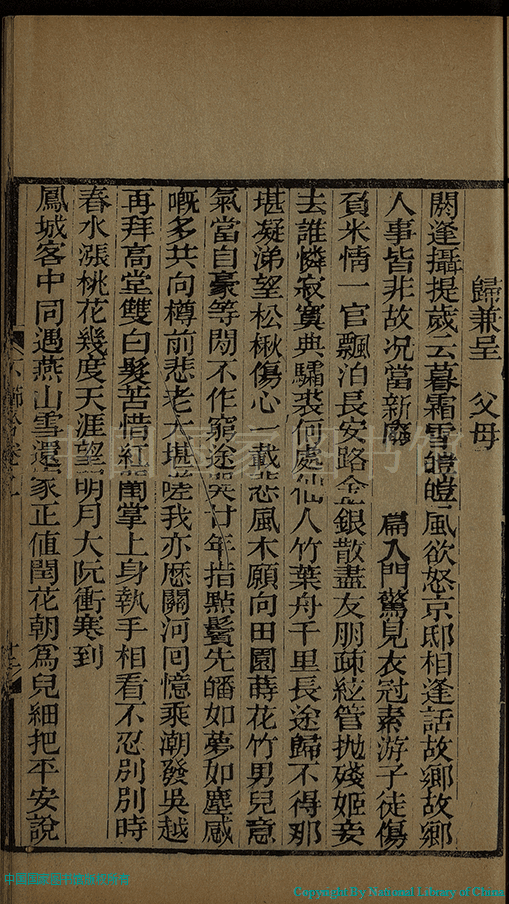 歸兼呈　父母
閼逢攝提歲云暮霜雪皚皚風欲怒京邸相逢話故鄉故鄉
人事皆非故况當新廢　　篇入門驚見衣冠素游子徒傷
負米情一官飄泊長安路金銀散盡友朋疎絃管抛殘姬妾
去誰憐寂寞典驌裘何處仙人竹葉舟千里長途歸不得那
堪凝涕望松楸傷心一載悲風木願向田園蒔花竹男兒意
氣當自豪等閒不作窮途哭廿年指點鬢先皤如夢如塵感
嘅多共向樽前悲老大堪嗟我亦歷關河回憶乘潮發吳越
再拜高堂雙白髮苦惜紅閨掌上身執手相看不忍別別時
春水漲桃花幾度天涯望明月大阮衝寒到
鳳城客中同遇燕山雪還家正值閏花朝爲兒細把平安說
中国国家图书馆
Copyright By National Library of China